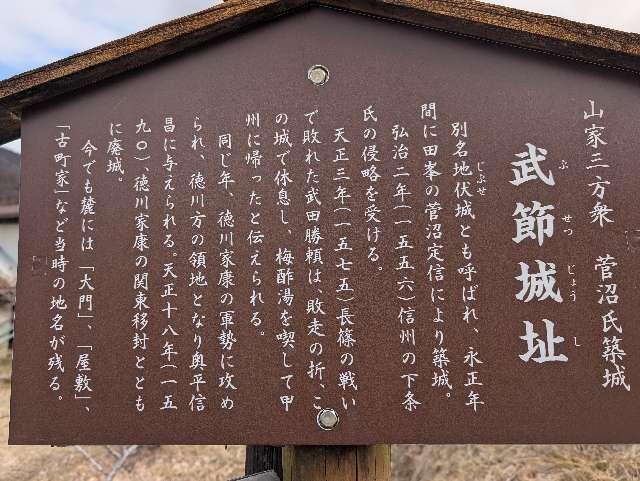 山家三方衆　菅沼氏築城
武節城址
ぶ せつ じょう し
別名地伏城とも呼ばれ、永正年
じぶせ
間に田峯の菅沼定信により築城。
弘治二年(一五五六)信州の下条
氏の侵略を受ける。
天正三年(一五七五)長篠の戦い
で敗れた武田勝頼は、敗走の折、こ
の城で休息し、梅酢湯を喫して甲
州に帰ったと伝えられる。
同じ年、徳川家康の軍勢に攻め
られ、徳川方の領地となり奥平信
昌に与えられる。天正十八年(一五
九〇)徳川家康の関東移封ととも
に廃城。
今でも麓には「大門」、「屋敷」、
「古町家」など当時の地名が残る。